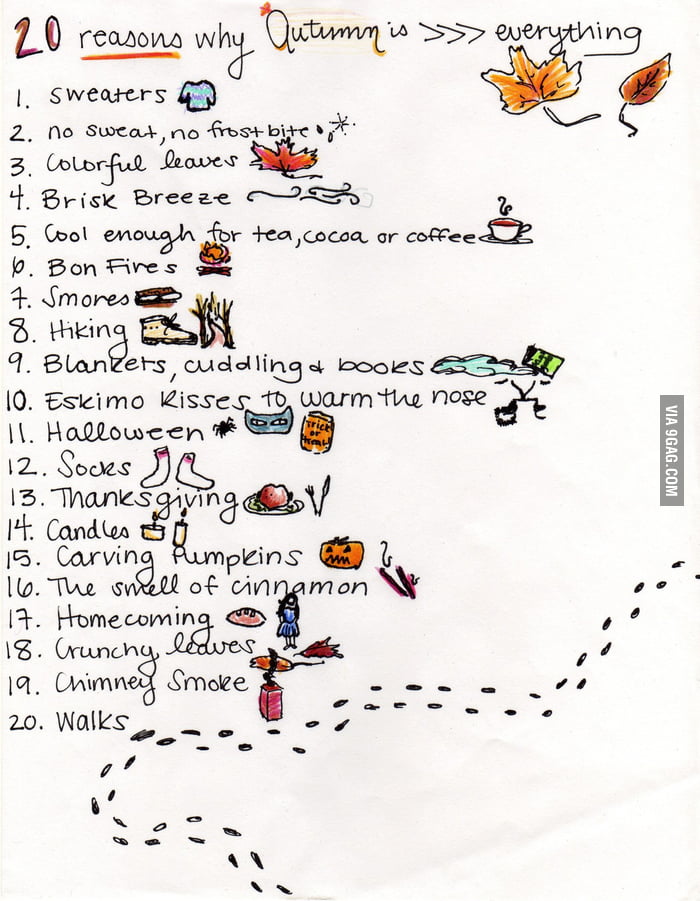 20 reasons why Autumn is >>> everything
1. sweaters
2. no sweat, no frostbite
3. Colorful leaves
4. Brisk Breeze
5. Cool enough for tea, cocoa or coffee
6. Bon Fires
7. Smores
8. Hiking
9. Blankets, cuddling & books
10. Eskimo Kisses to warm the nose
11. Halloween
Trick
or
treat
12. Socks
13. Thanksgiving
14. Candles
15. Carving Pumpkins
16. The smell of cinnamon
17. Homecoming
18. Crunchy leaves
19. Chimney Smoke
20. Walks
VIA 9GAG.COM